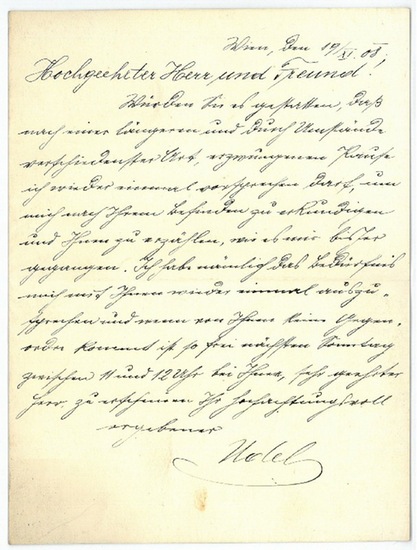 Wien, den 19/XI. 08.
Hochgeehrter Herr und Freund!
Würden Sie es gestatten, daß
nach einer längeren und durch Umstände
verschiedenster Art, erzwungenen Pause
ich wieder einmal vorsprechen darf, um
mich nach Ihrem Befinden zu erkundigen
und Ihnen zu erzählen, wie es mir bisher
gegangen. Ich hab nämlich das Bedürfnis
mich mit Ihnen wieder einmal auszu-
sprechen und wenn von Ihnen keine Gegen-
ordre kommt, so frei nächsten Sonntag
zwischen 11 und 12 Uhr bei Ihnen, sehr geehrter
Herr, zu erscheinen. Ihr hochachtungsvoll
ergebener
Udel